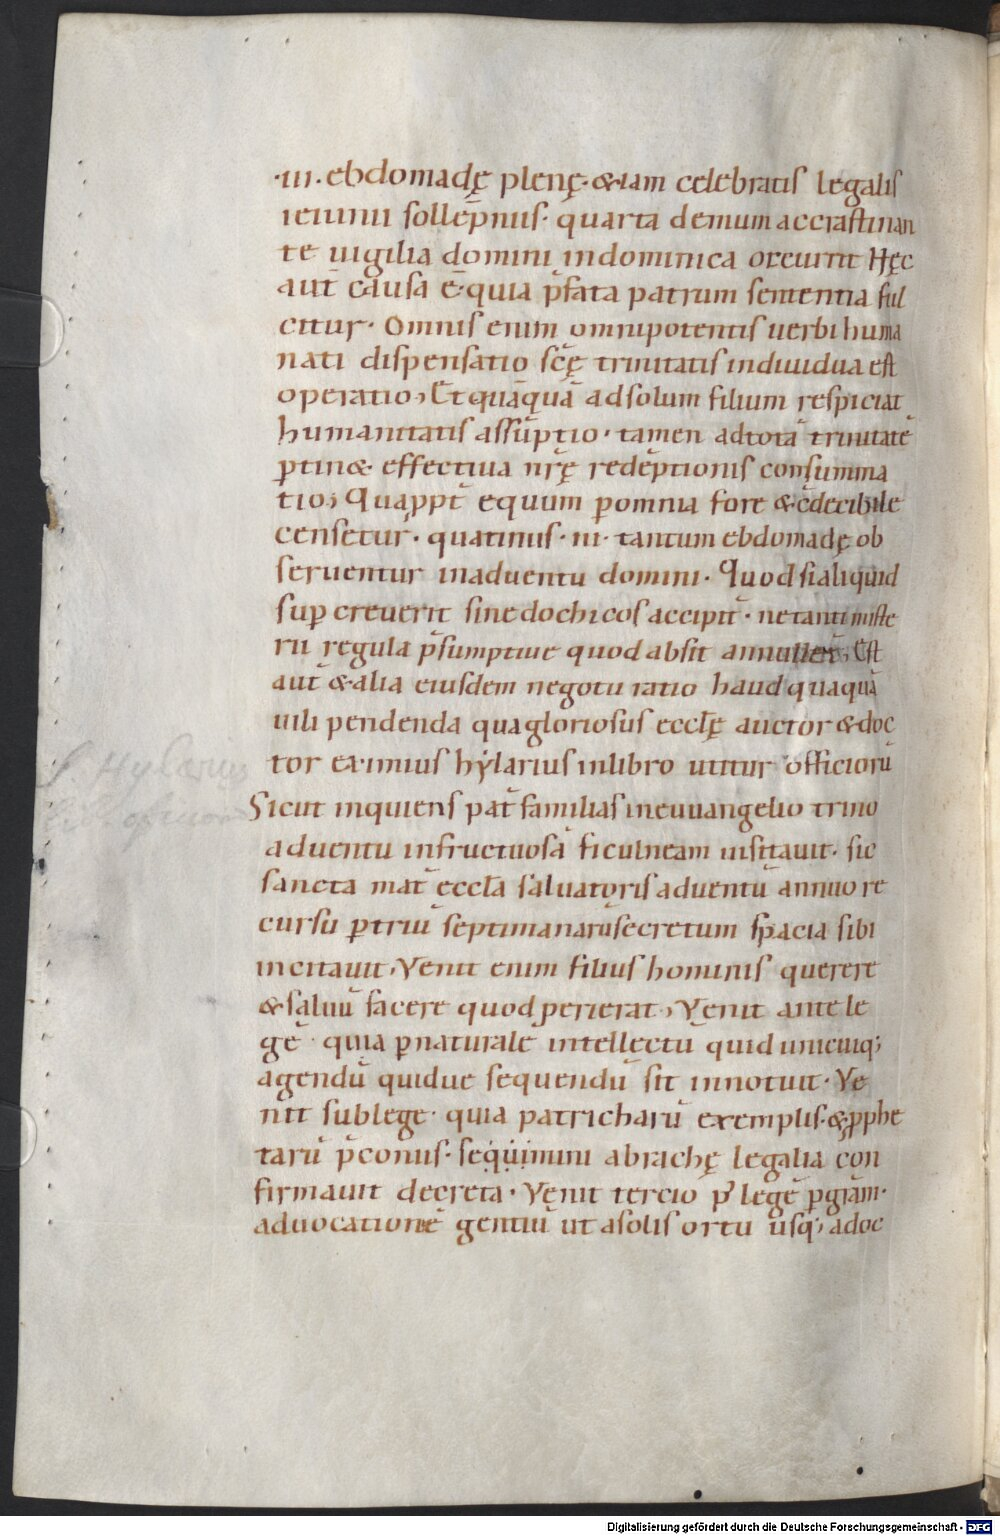 ·iii· ebdomadę plenę· &iam celebratis legalis
ieiunii sollēpniis· quarta demum accrastinan
te uigilia domini indominica oreiutit Hęc
aut̄ causa ē· quia p̄fata patrum sententia ful
citur· Omnis enim omnipotentis uerbi huma
nati dispensatio scę̄ trinitatis indiuidua est
operatio, Et quāquā adsolum filium respiciat
humanitatis assūptio· tamen adtotā trinitatē
ꝑtin& effectiua nrę̄ redēptionis consumma
tio, Quappt̄ equum ꝑomnia fore & c̄decibile
censetur· quatinus· iii· tantum ebdomadę ob
seruentur inaduentu domini· Quod sialiquid
suꝑ creuerit sinedochicos accipit̄· netanti miste
rii regula p̄sumptiue quod absit annullet̄, Est
aut̄ & alia eiusdem negotii ratio haud quaquā
uili pendenda qua gloriosus eccłę auctor & doc
tor eximius hẏlarius inlibro utitur officiorū
S. Hylarius
Sicut inquiens pat̄ familias ineuuangelio trino
aduentu infructuosā ficulneam uisitauit· sic
sancta mat̄ eccła saluatoris aduentū annuo re
cursu ꝑtriū septimanarū secretum spacia sibi
incitauit, Venit enim filius hominis querere
& saluū facere quod perierat, Venit ante le
gē· quia ꝑnaturalē intellectū quid unicuiq;
agendū quidue sequendū sit innotuit· Ve
nit sublege· quia patricharū exemplis· & ꝓphe
tarū p̄coniis· sequimini abrachę legalia con
firmauit decreta· Venit tercio p̄ legē ꝑgr̄am·
aduocationē gentiū ut asolis ortu usq; adoc
Digitalisierung gefördert durch die Deutsche Forschungsgemeinschaft - DFG